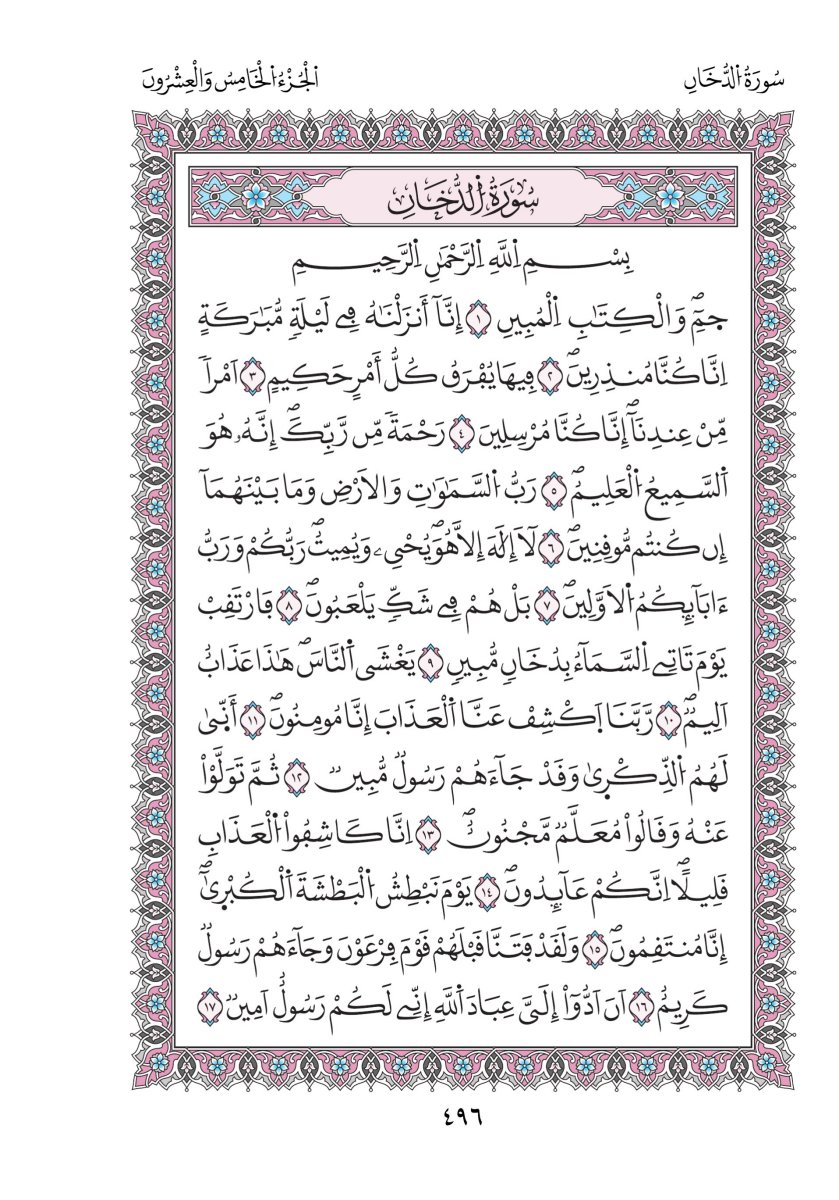 سُورَةُ اُ۬لدُّخَانِ
اَ۬لْجُزْءُ اُ۬لْخَامِسُ وَالْعِشْرُونَ
سُورَةُ اُ۬لدُّخَانِ
بِسْمِ اِ۬للَّهِ اِ۬لرَّحْمَٰنِ اِ۬لرَّحِيمِ
حٓمِٓۖ وَالْكِتَٰبِ اِ۬لْمُبِينِ ١ إِنَّآ أَنزَلْنَٰهُ فِے لَيْلَةٖ مُّبَٰرَكَةٍ
اِنَّا كُنَّا مُنذِرِينَۖ ٢ فِيهَا يُفْرَقُ كُلُّ أَمْرٍ حَكِيمٍ ٣ اَمْراٗ
مِّنْ عِندِنَآۖ إِنَّا كُنَّا مُرْسِلِينَ ٤ رَحْمَةٗ مِّن رَّبِّكَۖ إِنَّهُۥ هُوَ
اَ۬لسَّمِيعُ اُ۬لْعَلِيمُۖ ٥ رَبُّ اُ۬لسَّمَٰوَٰتِ وَالَارْضِ وَمَا بَيْنَهُمَآ
إِن كُنتُم مُّوقِنِينَۖ ٦ لَآ إِلَٰهَ إِلَّا هُوَۖ يُحْيِۦ وَيُمِيتُۖ رَبُّكُمْ وَرَبُّ
ءَابَآئِكُمُ اُ۬لَاوَّلِينَۖ ٧ بَلْ هُمْ فِے شَكّٖ يَلْعَبُونَۖ ٨ فَارْتَقِبْ
يَوْمَ تَاتِے اِ۬لسَّمَآءُ بِدُخَانٖ مُّبِينٖ ٩ يَغْشَى اَ۬لنَّاسَۖ هَٰذَا عَذَابٌ
اَلِيمٞۖ ١٠ رَّبَّنَا اَ۪كْشِفْ عَنَّا اَ۬لْعَذَابَ إِنَّا مُومِنُونَۖ ١١ أَنّ۪يٰ
لَهُمُ اُ۬لذِّكْر۪يٰ وَقَدْ جَآءَهُمْ رَسُولٞ مُّبِينٞ ١٢ ثُمَّ تَوَلَّوْاْ
عَنْهُ وَقَالُواْ مُعَلَّمٞ مَّجْنُونٌۖ ١٣ اِنَّا كَاشِفُواْ اُ۬لْعَذَابِ
قَلِيلًاۖ اِنَّكُمْ عَآئِدُونَۖ ١٤ يَوْمَ نَبْطِشُ اُ۬لْبَطْشَةَ اَ۬لْكُبْر۪يٰٓۖ
إِنَّا مُنتَقِمُونَۖ ١٥ وَلَقَدْ فَتَنَّا قَبْلَهُمْ قَوْمَ فِرْعَوْنَ وَجَآءَهُمْ رَسُولٞ
كَرِيمٌ ١٦ اَنَ اَدُّوٓاْ إِلَيَّ عِبَادَ اَ۬للَّهِ إِنِّے لَكُمْ رَسُولٌ اَمِينٞ ١٧
٤٩٦